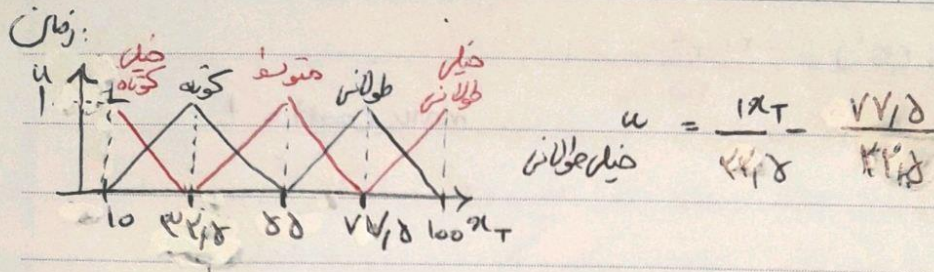 زمان:
u
۱
خیلی کوتاه
کوتاه
متوسط
طولانی
خیلی طولانی
۱۰ ۳۲٫۵ ۵۵ ۷۷٫۵ ۱۰۰ x_T
u خیلی طولانی = ۱x_T / ۲۲٫۵ - ۷۷٫۵ / ۲۲٫۵